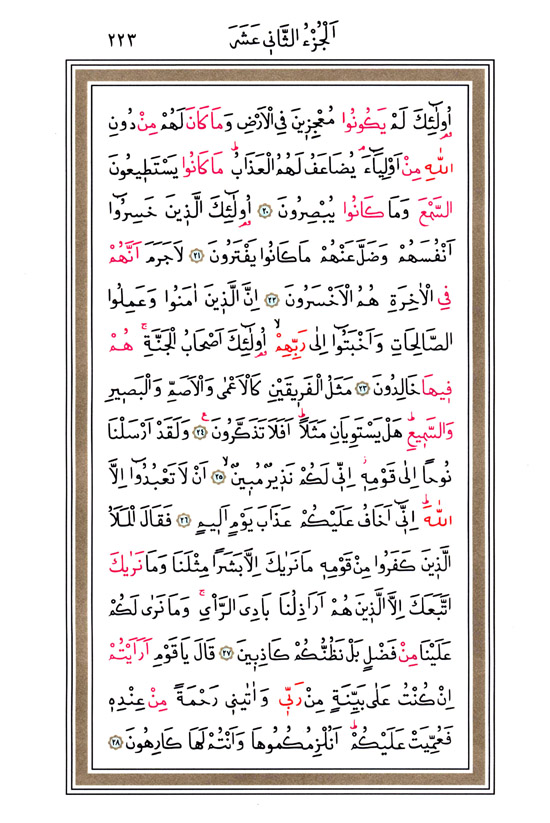 اَلْجُزْءُ الثَّانٖي عَشَرَ ٢٢٣
اُو۬لٰٓئِكَ لَمْ يَكُونُوا مُعْجِزٖينَ فِي الْاَرْضِ وَمَا كَانَ لَهُمْ مِنْ دُونِ
اللّٰهِ مِنْ اَوْلِيَٓاءَۢ يُضَاعَفُ لَهُمُ الْعَذَابُؕ مَا كَانُوا يَسْتَطٖيعُونَ
السَّمْعَ وَمَا كَانُوا يُبْصِرُونَ ﴿٢٠﴾ اُو۬لٰٓئِكَ الَّذٖينَ خَسِرُٓوا
اَنْفُسَهُمْ وَضَلَّ عَنْهُمْ مَا كَانُوا يَفْتَرُونَ ﴿٢١﴾ لَاجَرَمَ اَنَّهُمْ
فِي الْاٰخِرَةِ هُمُ الْاَخْسَرُونَ ﴿٢٢﴾ اِنَّ الَّذٖينَ اٰمَنُوا وَعَمِلُوا
الصَّالِحَاتِ وَاَخْبَتُٓوا اِلٰى رَبِّهِمْۙ اُو۬لٰٓئِكَ اَصْحَابُ الْجَنَّةِۚ هُمْ
فٖيهَا خَالِدُونَ ﴿٢٣﴾ مَثَلُ الْفَرٖيقَيْنِ كَالْاَعْمٰى وَالْاَصَمِّ وَالْبَصٖيرِ
وَالسَّمٖيعِؕ هَلْ يَسْتَوِيَانِ مَثَلاًؕ اَفَلَا تَذَكَّرُونَۚ ﴿٢٤﴾ وَلَقَدْ اَرْسَلْنَا
نُوحاً اِلٰى قَوْمِهٖؗ اِنّٖي لَكُمْ نَذٖيرٌ مُبٖينٌۙ ﴿٢٥﴾ اَنْ لَا تَعْبُدُٓوا اِلَّا
اللّٰهَؕ اِنّٖٓي اَخَافُ عَلَيْكُمْ عَذَابَ يَوْمٍ اَلٖيمٍ ﴿٢٦﴾ فَقَالَ الْمَلَاُ
الَّذٖينَ كَفَرُوا مِنْ قَوْمِهٖ مَا نَرٰيكَ اِلَّا بَشَراً مِثْلَنَا وَمَا نَرٰيكَ
اتَّبَعَكَ اِلَّا الَّذٖينَ هُمْ اَرَاذِلُنَا بَادِيَ الرَّأْيِۚ وَمَا نَرٰى لَكُمْ
عَلَيْنَا مِنْ فَضْلٍ بَلْ نَظُنُّكُمْ كَاذِبٖينَ ﴿٢٧﴾ قَالَ يَا قَوْمِ اَرَاَيْتُمْ
اِنْ كُنْتُ عَلٰى بَيِّنَةٍ مِنْ رَبّٖي وَاٰتٰينٖي رَحْمَةً مِنْ عِنْدِهٖ
فَعُمِّيَتْ عَلَيْكُمْؕ اَنُلْزِمُكُمُوهَا وَاَنْتُمْ لَهَا كَارِهُونَ ﴿٢٨﴾